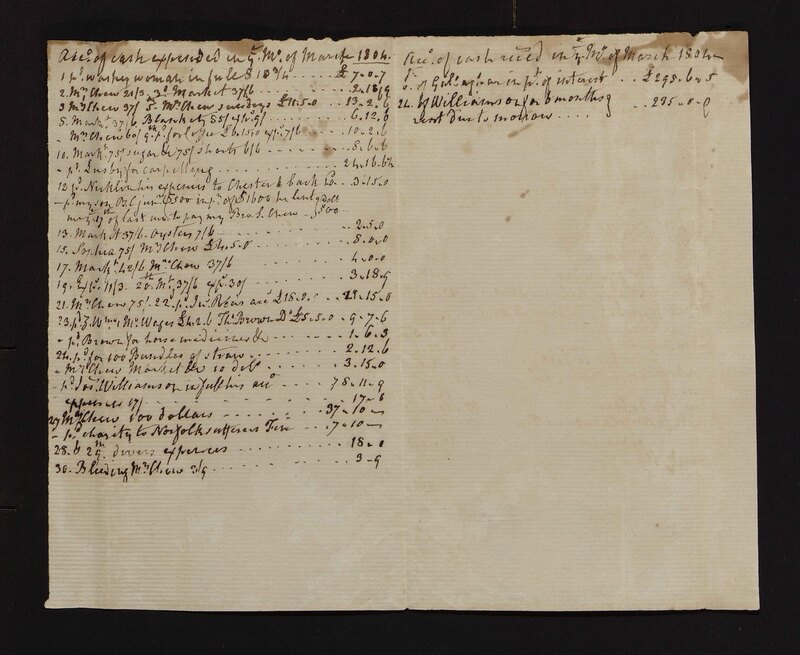 Acct. of cash expended in ye. Mo. of March 1804.
1 pd. washer woman in full $18 3/4 .... £ 7-0-7
2. Mrs. Chew 21/3. 3d. Market 37/6 .... 2-18/9
3 Mrs. Chew 37/ 5th. Mrs. Chew sundrys £11.5.0 13-2-6
8. Markt. 37/6 Blankets 85/ .... 6.12.6
- Mrs. Chew 60/ pd. for coffee £6.15.0 7/6 .... 10-2-6
10. Markt. 75/ sugar & 75/ shorts 6/6 .... 8-6-6
- pd. Lusby for carpetting .... 24-16.6½
12 pd. Nicklin his expences to Chester & back .... 3-15.0
- pd. my son B C junr. $500 in pt. of $1600 he lent
me ye. of last mo. to pay my Bro. S. Chew .. 500 ..
13. Market 37/6. Oysters 7/6 .... 2-5-0
15. Sophia 75/ Mrs. Chew £4.5.0 .... 8-0-0
17. Markt. 42/6 Mrs. Chew 37/6 .... 4-0-0
19. 11/3. 20th. Mt. 37/6 30/ .... 3-18-9
21. Mrs. Chew 75/. 22. pd. acct. £18.0. .... 21-15-0
23. pd. Wm. Wages £4.2.6 Ths. Brown Do. £5.5.0 - 9-7-6
- pd. Brown for horse medicines &c .... 1-6-3
24. pd. for 100 Bundles of straw .... 2-12-6
- Mrs. Chew Market &c 10 dols. .... 3.15.0
- pd. Jos. Williamson in full his acct. .... 78-11-9
expences 17/ .... 17-6
27 Mrs. Chew 100 dollars .... 37-10-
- pd. charity to Norfolk sufferers Fire .... 7-10-
28. & 29th. divers expences .... 18-0
30. Bleeding Mrs. Chew 3/9 .... 3-9
Acct. of cash recd. in ye. Mo. of March 1804
of in pt. of interest .. £295-6-5
24. Williamson for 3 months
rent due tomorrow .... 235-0-0